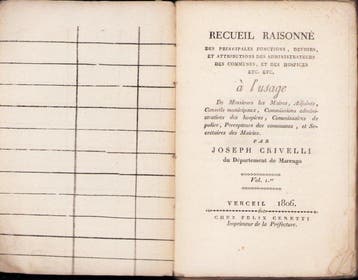 RECUEIL RAISONNÉ
DES PRINCIPALES FONCTIONS, DEVOIRS,
ET ATTRIBUTIONS DES ADMINISTRATEURS
DES COMMUNES, ET DES HOSPICES
ETC. ETC.
à l'usage
De Messieurs les Maires, Adjoints,
Conseils municipaux, Commissions admini-
stratives des hospices, Commissaires de
police, Percepteurs des communes, et Se-
crétaires des Mairies.
PAR
JOSEPH CRIVELLI
du Département de Marengo
Vol. 1.er
VERCEIL 1806.
CHEZ FELIX CERETTI
Imprimeur de la Préfecture.